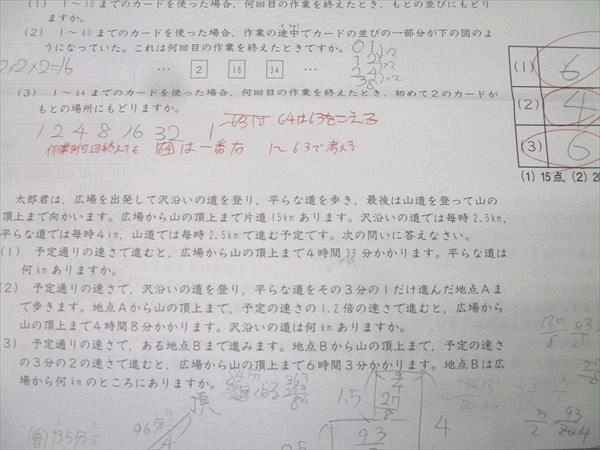 (1) 1～10までのカードを使った場合、何回目の作業を終えたとき、もとの並びにもどり
ますか。
(2) 1～60までのカードを使った場合、作業の途中でカードの並びの一部分が下の図のよ
うになっていた。これは何回目の作業を終えたときですか。
2×2×2=16
… 2 18 34 …
(3) 1～64までのカードを使った場合、何回目の作業を終えたとき、初めて2のカードが
もとの場所にもどりますか。
64は63をこえる
1 2 4 8 16 32 1
は一番右 1～63で考える
(1) 6
(2) 4
(3) 6
(1) 15点, (2) 20
太郎君は、広場を出発して沢沿いの道を登り、平らな道を歩き、最後は山道を登って山の
頂上まで向かいます。広場から山の頂上まで片道15kmあります。沢沿いの道では毎時2.5km,
平らな道では毎時4km, 山道では毎時2.5kmで進む予定です。次の問いに答えなさい。
(1) 予定通りの速さで進むと、広場から山の頂上まで4時間39分かかります。平らな道は
何kmありますか。
(2) 予定通りの速さで、沢沿いの道を登り、平らな道をその3分の1だけ進んだ地点Aま
で歩きます。地点Aから山の頂上まで、予定の速さの1.2倍の速さで進むと、広場から
山の頂上まで4時間8分かかります。沢沿いの道は何kmありますか。
3) 予定通りの速さで、ある地点Bまで進みます。地点Bから山の頂上まで、予定の速さ
の3分の2の速さで進むと、広場から山の頂上まで6時間3分かかります。地点Bは広
場から何kmのところにありますか。
頂
1.5
4
96分